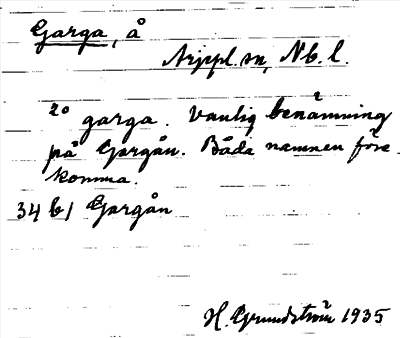 Garga, å
Arjpl. sn, Nb. l.
2° garga. Vanlig benämning
på Gargån. Båda namnen före-
komma.
34 b1 Gargån
H. Grundström 1935